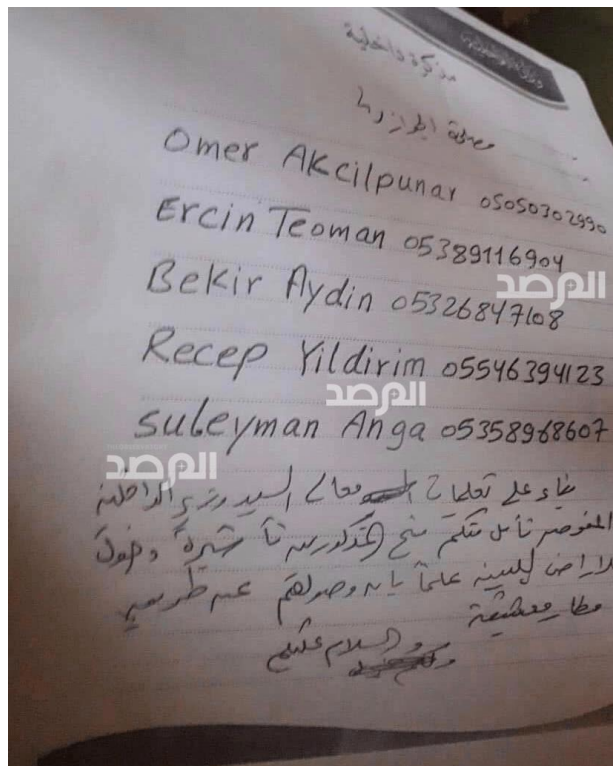 مذكرة داخلية
مصلحة الجوازات
Omer AKcilpunar 05050302990
Ercin Teoman 05389116904
المرصد
Bekir Aydin 05326847108
Recep Yildirim 05546394123
المرصد
Suleyman Anga 05358968607
المرصد
بناء على تعليمات معالي السيد وزير الداخلية
المفوض نأمل منكم منح المذكورين تأشيرة دخول
للأراضي الليبية علماً بأن وصولهم عن طريق
مطار معيتيقة
والسلام عليكم